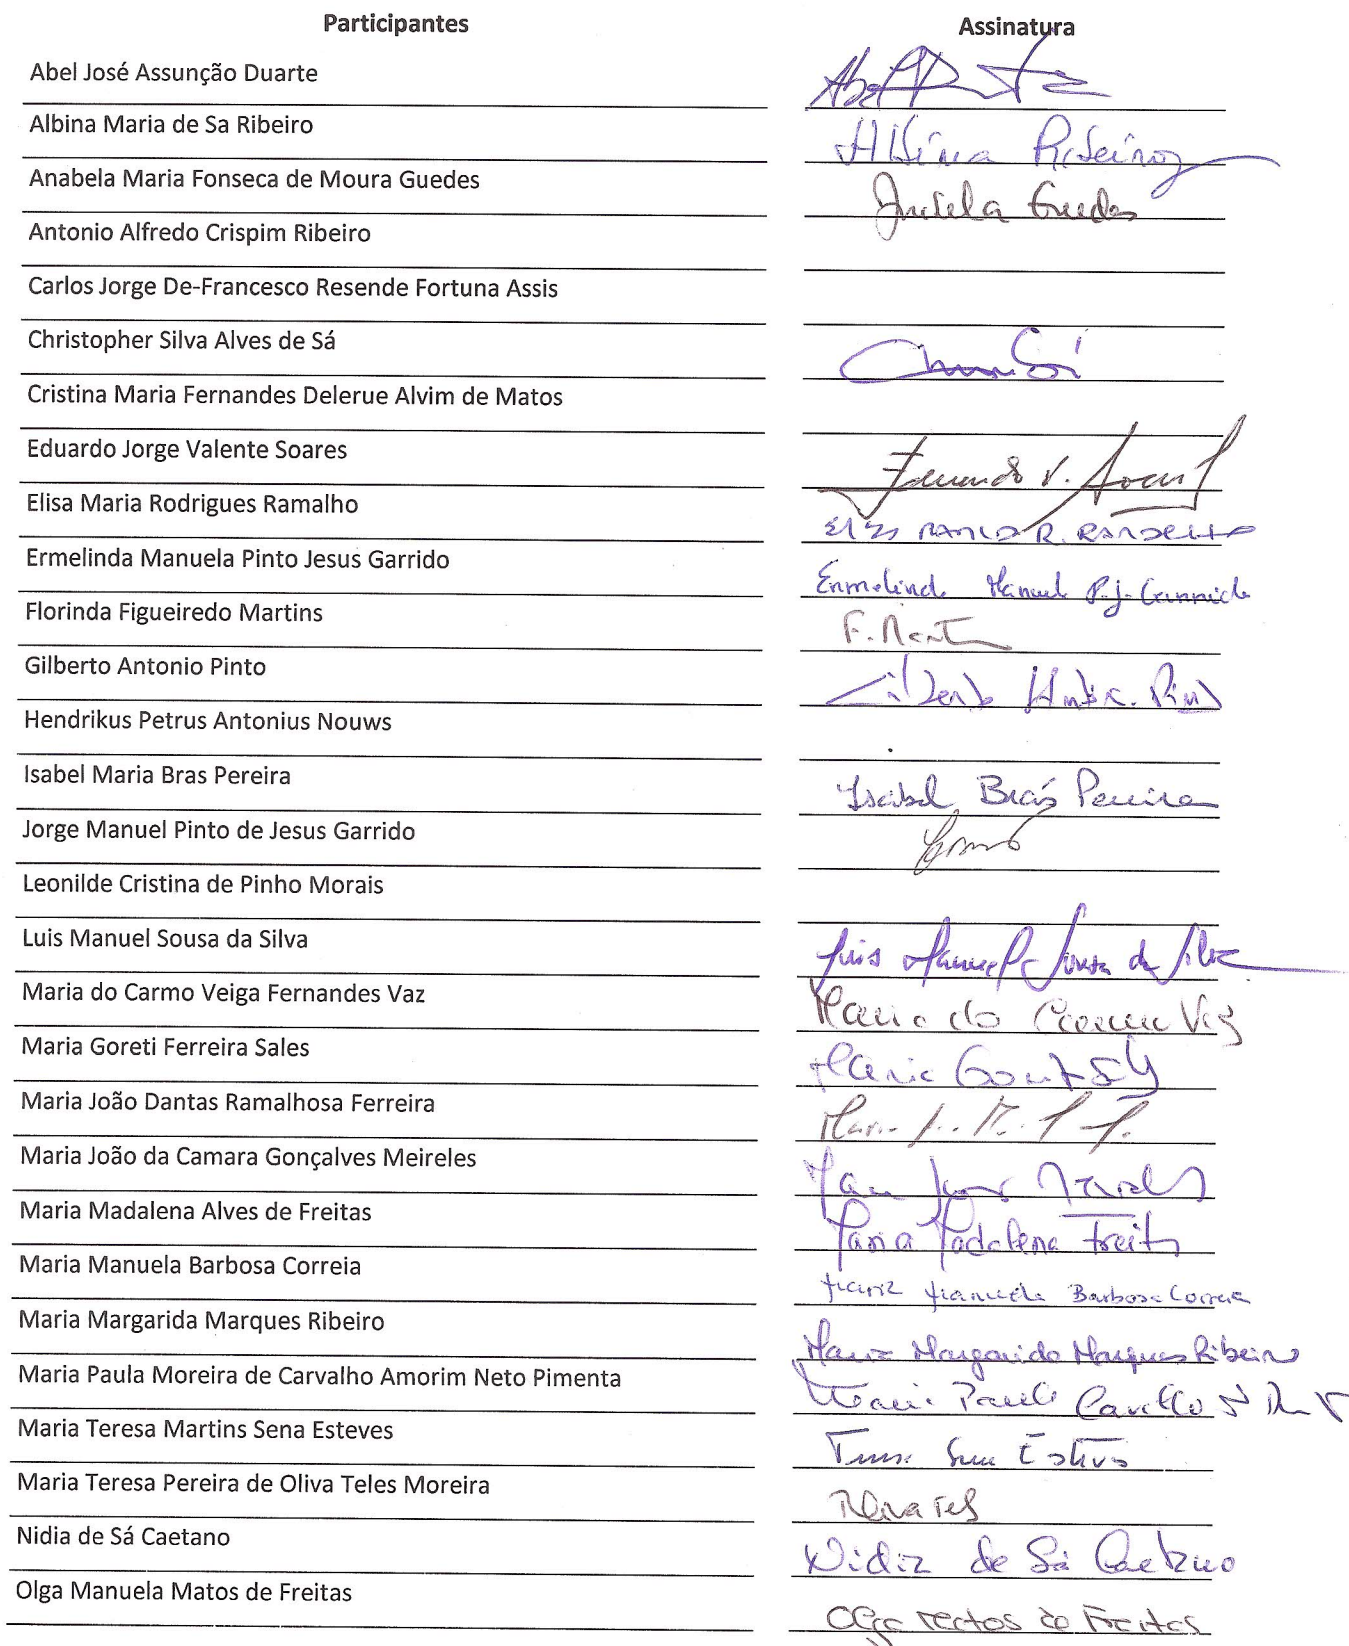 Participantes Assinatura
Abel José Assunção Duarte
Albina Maria de Sa Ribeiro Albina Ribeiro
Anabela Maria Fonseca de Moura Guedes Guedes
Antonio Alfredo Crispim Ribeiro
Carlos Jorge De-Francesco Resende Fortuna Assis
Christopher Silva Alves de Sá
Cristina Maria Fernandes Delerue Alvim de Matos
Eduardo Jorge Valente Soares Eduardo V. Soares
Elisa Maria Rodrigues Ramalho Elisa Maria R. Ramalho
Ermelinda Manuela Pinto Jesus Garrido Ermelinda Manuela P. J. Garrido
Florinda Figueiredo Martins F. Martins
Gilberto Antonio Pinto Gilberto Pinto
Hendrikus Petrus Antonius Nouws
Isabel Maria Bras Pereira Isabel Brás Pereira
Jorge Manuel Pinto de Jesus Garrido
Leonilde Cristina de Pinho Morais
Luis Manuel Sousa da Silva Luis Manuel Sousa da Silva
Maria do Carmo Veiga Fernandes Vaz Maria do Carmo Vaz
Maria Goreti Ferreira Sales Maria Goreti
Maria João Dantas Ramalhosa Ferreira
Maria João da Camara Gonçalves Meireles
Maria Madalena Alves de Freitas Maria Madalena Freitas
Maria Manuela Barbosa Correia Maria Manuela Barbosa Correia
Maria Margarida Marques Ribeiro Maria Margarida Marques Ribeiro
Maria Paula Moreira de Carvalho Amorim Neto Pimenta Maria Paula
Maria Teresa Martins Sena Esteves Sena Esteves
Maria Teresa Pereira de Oliva Teles Moreira
Nidia de Sá Caetano Nidia de Sá Caetano
Olga Manuela Matos de Freitas Olga Matos de Freitas